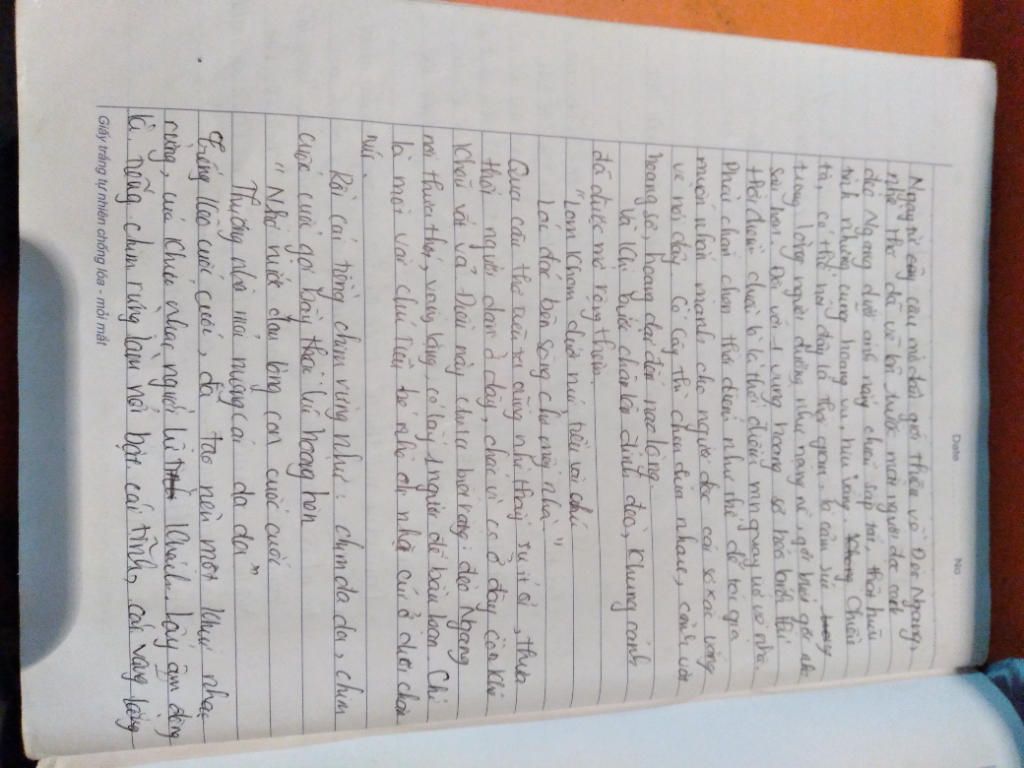 Date No
Ngay từ câu mở đầu giới thiệu về Đèo Ngang,
nhà thơ đã vẽ ra trước mắt người đọc cảnh
đèo Ngang dưới ánh nắng chiều sắp tàn, thời hữu
tình nhưng cũng hoang vu, hiu vắng. Chiều
tà, có thể nói đây là thời gian
trong lòng người dường như nặng nề gợi
sâu hơn. Đối với 1 vùng hoang sơ
thời điểm cuối là thời điểm quay về nhà
Phải chăng chọn thời điểm như thế để tác giả
muốn nhấn mạnh cho người đọc cái xơ xác vắng
vẻ nơi đây. Cỏ cây thì chen đua nhau, cảnh vừa
hoang sơ, hoang dại đến nao lòng.
Và khi bước chân lên đỉnh đèo, khung cảnh
đã được mở rộng thêm:
"Lom khom dưới núi tiều vài chú
Lác đác bên sông chợ mấy nhà"
Qua câu thơ trên ta cũng như thấy sự ít ỏi, thưa
thớt người dân ở đây, chắc vì cs ở đây còn khó
khăn và vất vả. Đoạn này cho ta biết rằng: đèo Ngang
nơi thưa thớt, vắng lặng, có lấy 1 người để bầu bạn. Chỉ
là một vài chú tiều bé nhỏ đi nhặt củi ở dưới chân
núi.
Rồi cái tiếng chim rừng như: chim da da, chim
cuốc cuốc gợi buồn thời lúc hoàng hôn
"Nhớ nước đau lòng con cuốc cuốc
Thương nhà mỏi miệng cái da da"
Tiếng kêu cuốc cuốc, đã tạo nên một khúc nhạc
rừng, của khúc nhạc người lữ khách. Lấy âm động
là tiếng chim rừng làm nổi bật cái tĩnh, cái vắng lặng
Giấy trắng tự nhiên chống lóa - mỏi mắt